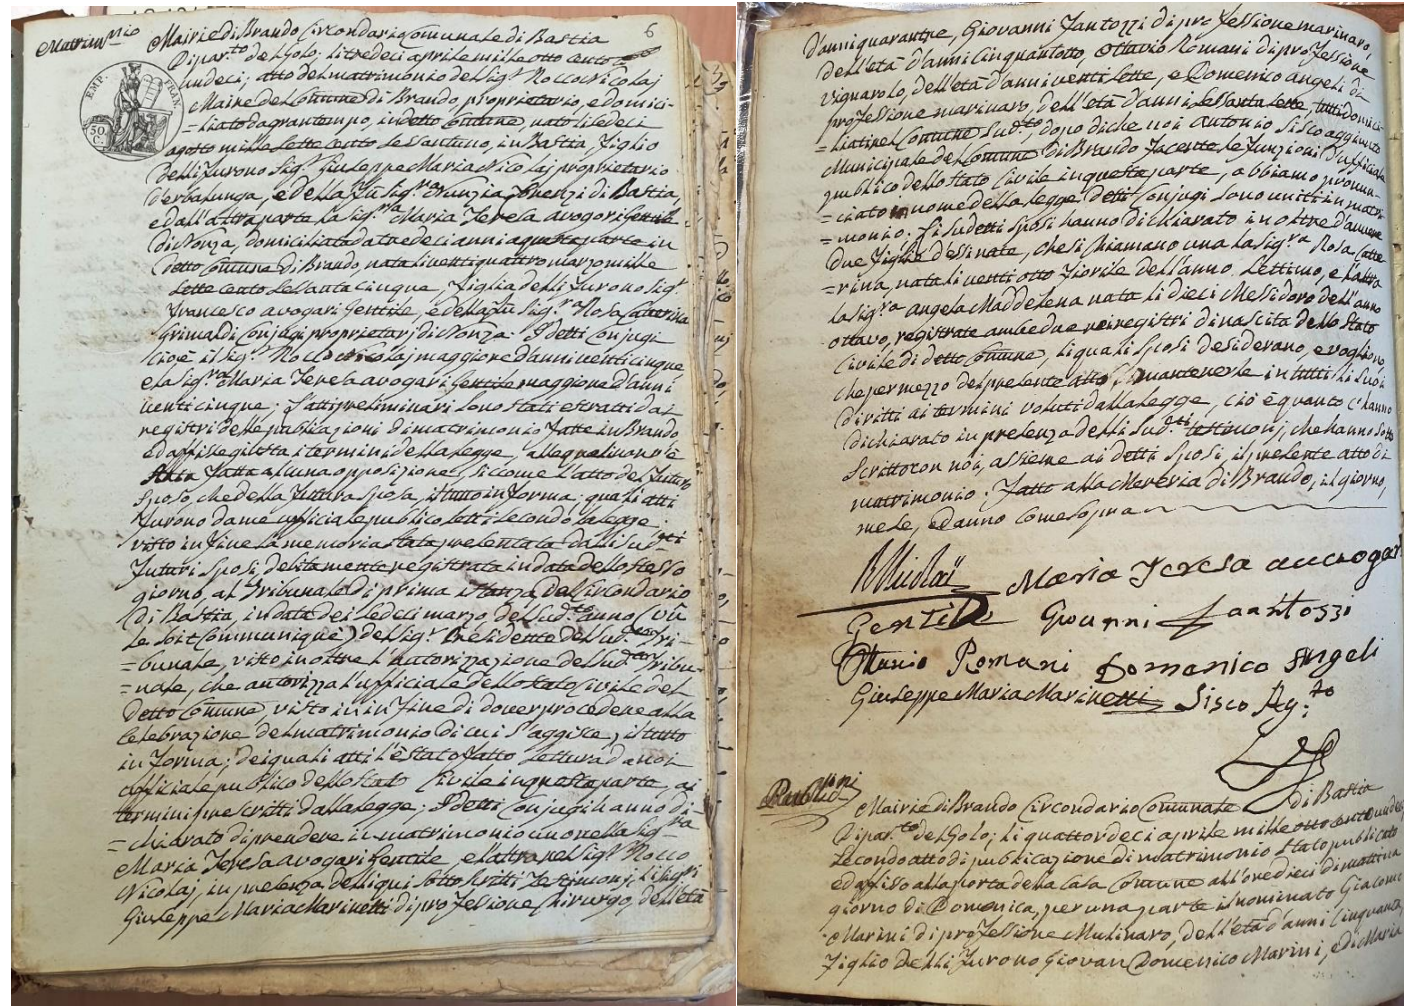 Matrim.nio
6
EMP. FRAN.
50 C.
Mairie di Brando Circondario Comunale di Bastia
Dipar.to del Golo; li tredeci aprile mille otto cento
undeci; atto del matrimonio del Sig.r Rocco Nicolaj
Maire del Comune di Brando, proprietario, e domici-
=liato da gran tempo, in detto Comune, nato li sedeci
agosto mille sette cento sessantuno, in Bastia, Figlio
delli furono Sig.r Giuseppe Maria Nicolaj proprietario
d'erbalunga, e della fu Sig.ra Orunzia Forenzi di Bastia,
e dall'altra parte la Sig.ra Maria Teresa avogari Gentile
di Nonza, domiciliata da tredeci anni a questa parte in
detto Comune di Brando, nata li venti quattro marzo mille
sette cento sessanta cinque, figlia delli furono Sig.r
Francesco avogari Gentile, e della fu Sig.ra Rosa Catterina
Grimaldi Conjugi proprietarj di Nonza: I detti Conjugi
cioè il Sig.r Rocco Nicolaj maggiore d'anni venti cinque,
e la Sig.ra Maria Teresa avogari Gentile maggiore d'anni
venti cinque; L'atti preliminari sono stati estratti dai
registri delle publicazioni di matrimonio fatte in Brando
ed affisse giusta i termini della legge, alle quali non è
stata fatta alcuna opposizione, siccome l'atto del futuro
sposo, che della futura sposa, il tutto in forma; quali atti
furono da me ufficiale publico letti secondo la legge:
visto in fine la memoria stata presentata dalli sud.ti
futuri sposi debitamente registrata in data dello stesso
giorno, al Tribunale di prima istanza del Circondario
di Bastia, in data dei sedeci marzo del sud.to anno (vû
le soit Communiqué) del Sig.r Presidente del sud.to Tri-
=bunale, visto inoltre l'autorizzazione del sud.to Tribu-
=nale, che autorizza l'ufficiale dello stato Civile del
detto Comune, visto in in fine di dover procedere alla
celebrazione del matrimonio di cui s'aggisce, il tutto
in forma; dei quali atti l'è stato fatto lettura da noi
officiale publico dello stato Civile in questa parte, ai
termini prescritti dalla legge; I detti Conjugi hanno di-
=chiarato di prendere in matrimonio uno nella Sig.ra
Maria Teresa avogari Gentile, e l'altra nel Sig.r Rocco
Nicolaj, in presenza delli qui sotto scritti Testimonj, li Sig.ri
Giuseppe Maria Marinetti di professione Chirurgo, dell'età
d'anni quarantre, Giovanni Fantozzi di professione marinaro,
dell'età d'anni cinquantotto, Ottavio Romani di professione
vignarolo, dell'età d'anni venti sette, e Domenico Angeli di
professione marinaro, dell'età d'anni sessanta sette, tutti domici-
=liati nel Comune sud.to, dopo di che noi Antonio Sisco aggiunto
Municipale del Comune di Brando facente le funzioni d'ufficiale
publico dello stato Civile in questa parte, abbiamo pronun-
=ciato in nome della legge detti Conjugi sono uniti in matri-
=monio: I sudetti sposi hanno dichiarato inoltre d'avere
due figlie d'essi nate, che si chiamano una la Sig.ra Rosa Catte
=rina, nata li venti otto fiorile dell'anno settimo, e l'altra
la Sig.ra angela Maddelena nata li dieci Messidoro dell'anno
ottavo, registrate ambedue nei registri di nascita dello stato
Civile di detto Comune, li quali sposi desiderano, e vogliono
che per mezzo del presente atto mantenerle in tutti li suoi
diritti ai termini voluti dalla legge, ciò è quanto c'hanno
dichiarato in presenza delli sud.ti testimonj, che hanno sotto
scritto con noi, assieme ai detti sposi, il presente atto di
matrimonio: Fatto alla Mereria di Brando, il giorno,
mese, ed anno come sopra
RNicolaÿ Maria Teresa auuogari
Gentile Giouanni Fantozzi
Ottauio Romani Domenico Angeli
Giuseppe Maria Marinetti Sisco Ag.to
Publicni
Mairie di Brando Circondario Comunale di Bastia
Dipar.to del Golo; li quattordeci aprile mille otto cento undeci,
secondo atto di publicazione di matrimonio stato publicato
ed affisso alla porta della Casa Comune all'ore dieci di mattina
giorno di Domenica, per una parte il nominato Giacomo
Marini di professione Mulinaro, dell'età d'anni cinquanta,
figlio delli furono Giovan Domenico Marini, e di Maria